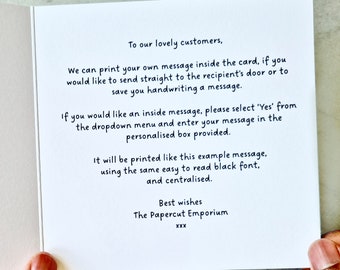 To our lovely customers,
We can print your own message inside the card, if you
would like to send straight to the recipient's door or to
save you handwriting a message.
If you would like an inside message, please select 'Yes' from
the dropdown menu and enter your message in the
personalised box provided.
It will be printed like this example message,
using the same easy to read black font,
and centralised.
Best wishes
The Papercut Emporium
xxx